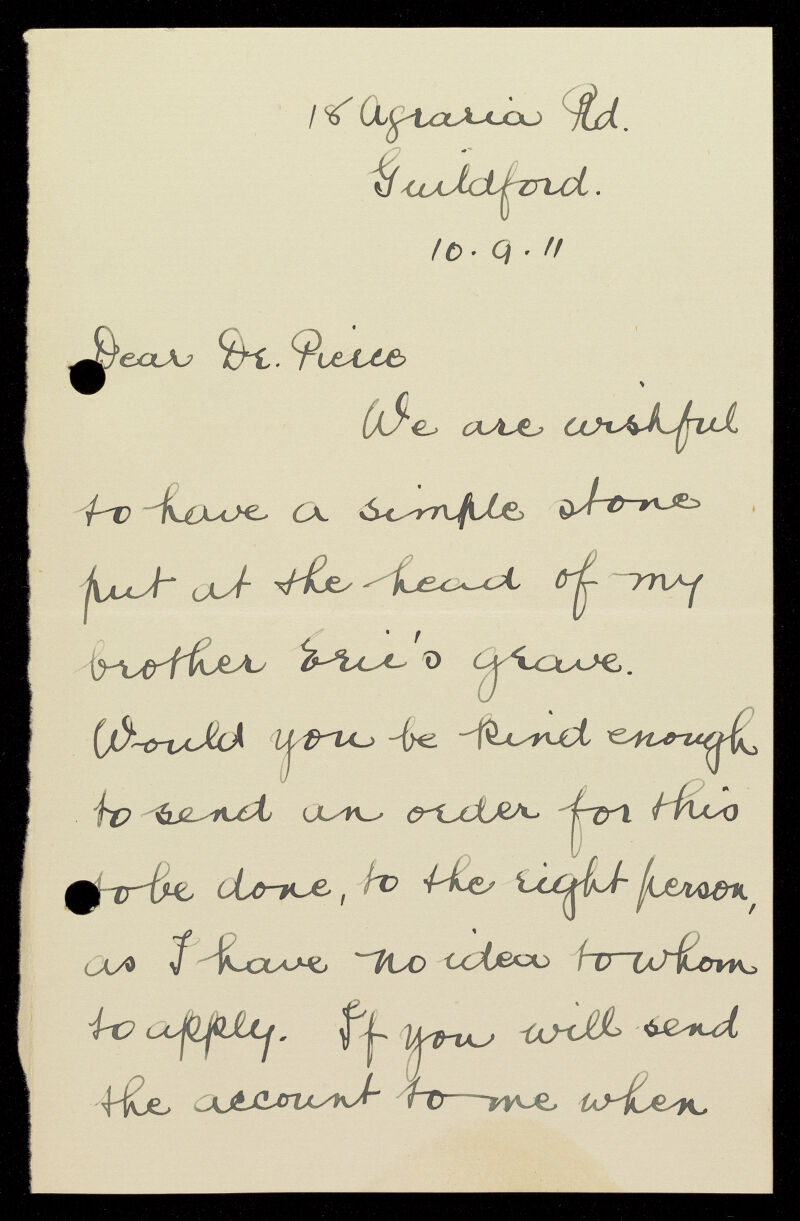 18 Agraria Rd.
Guildford.
10.9.11
Dear Dr. Pierce
We are wishful
to have a simple stone
put at the head of my
brother Eric's grave.
Would you be kind enough
to send an order for this
to be done, to the right person,
as I have no idea to whom
to apply. If you will send
the account to me when